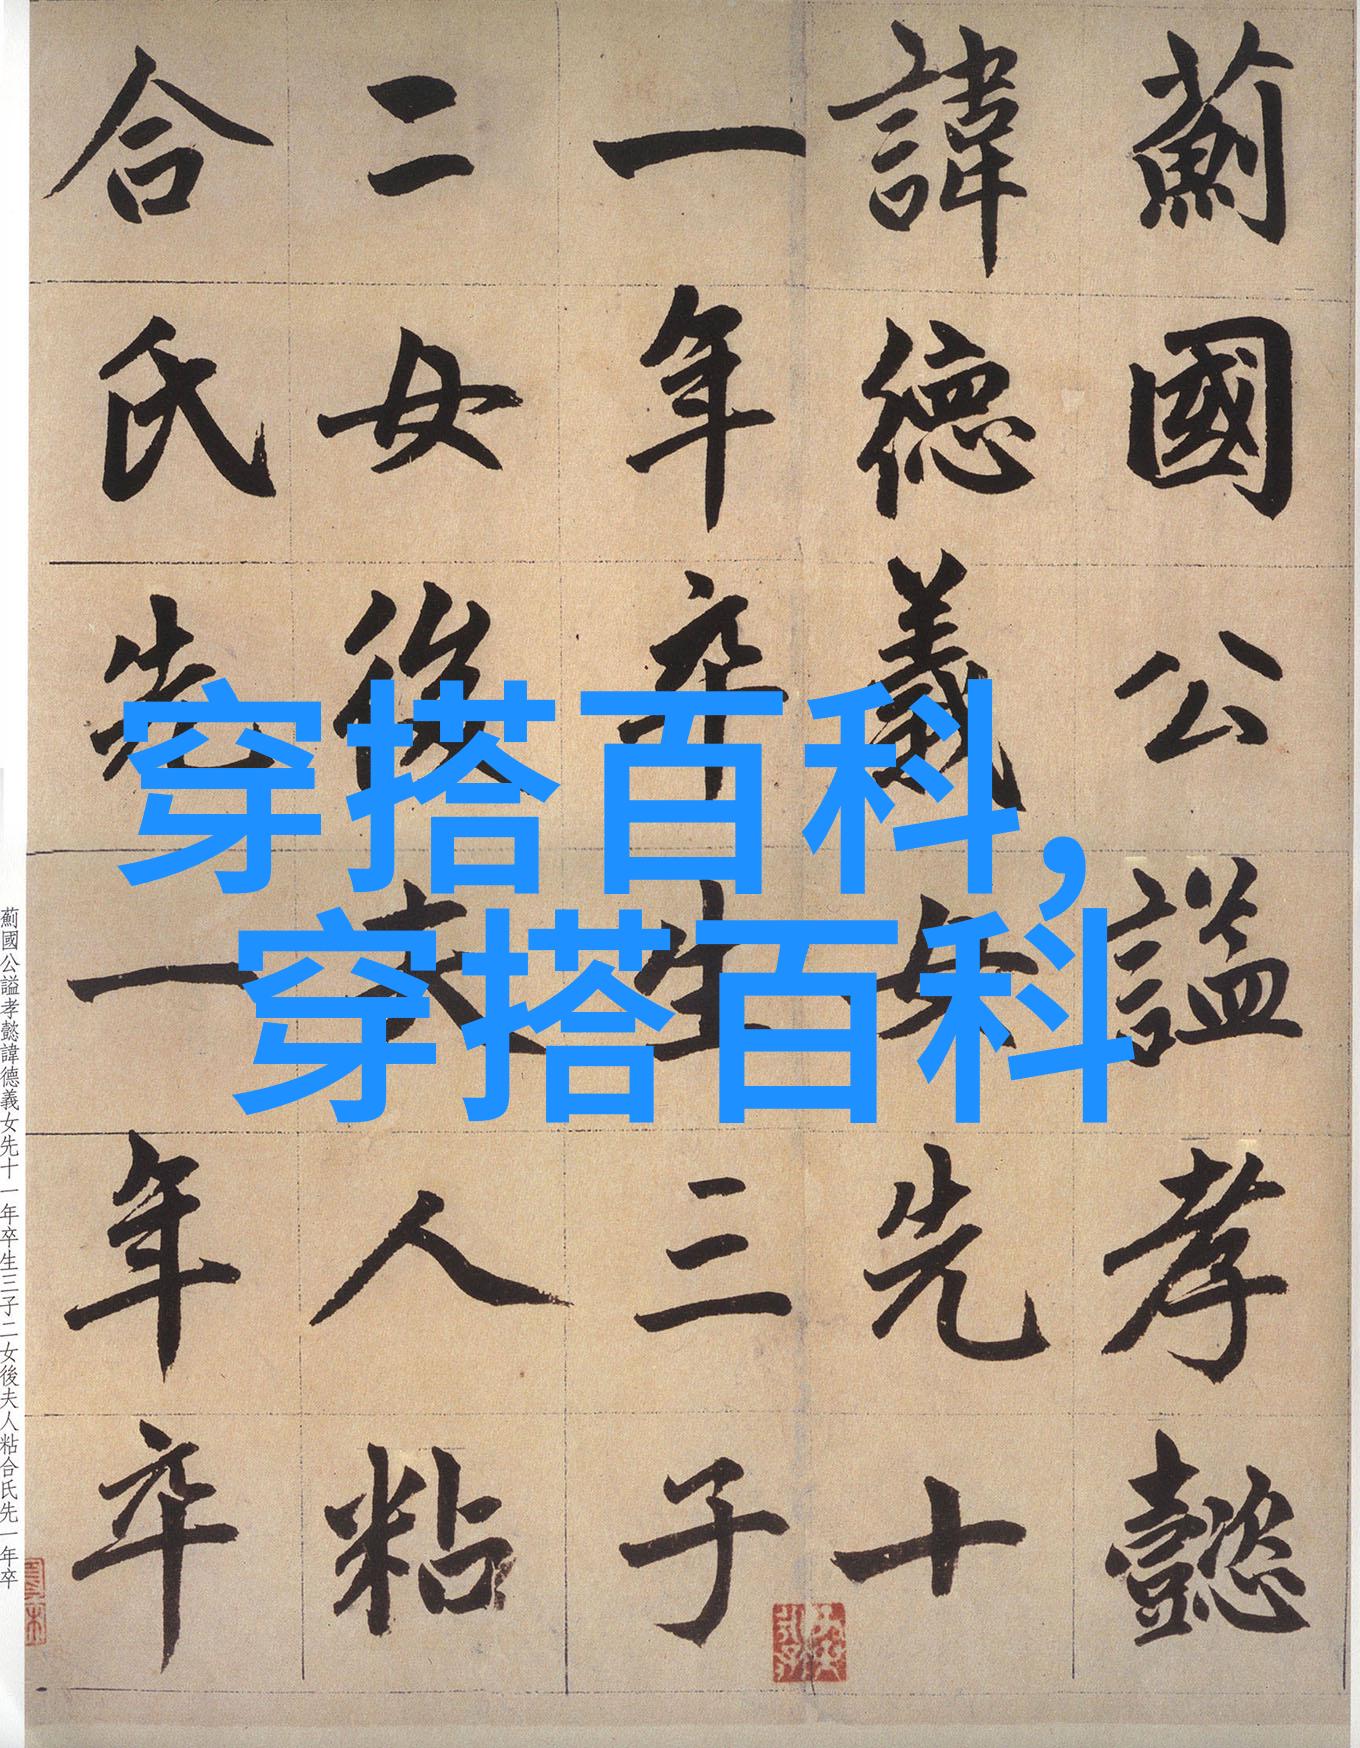 薊國公謚孝懿
諱德義女先十
一年卒生三子
二女後夫人粘
合氏先一年卒
薊國公謚孝懿諱德義女先十一年卒生三子二女後夫人粘合氏先一年卒
穿搭百科,
穿搭百科